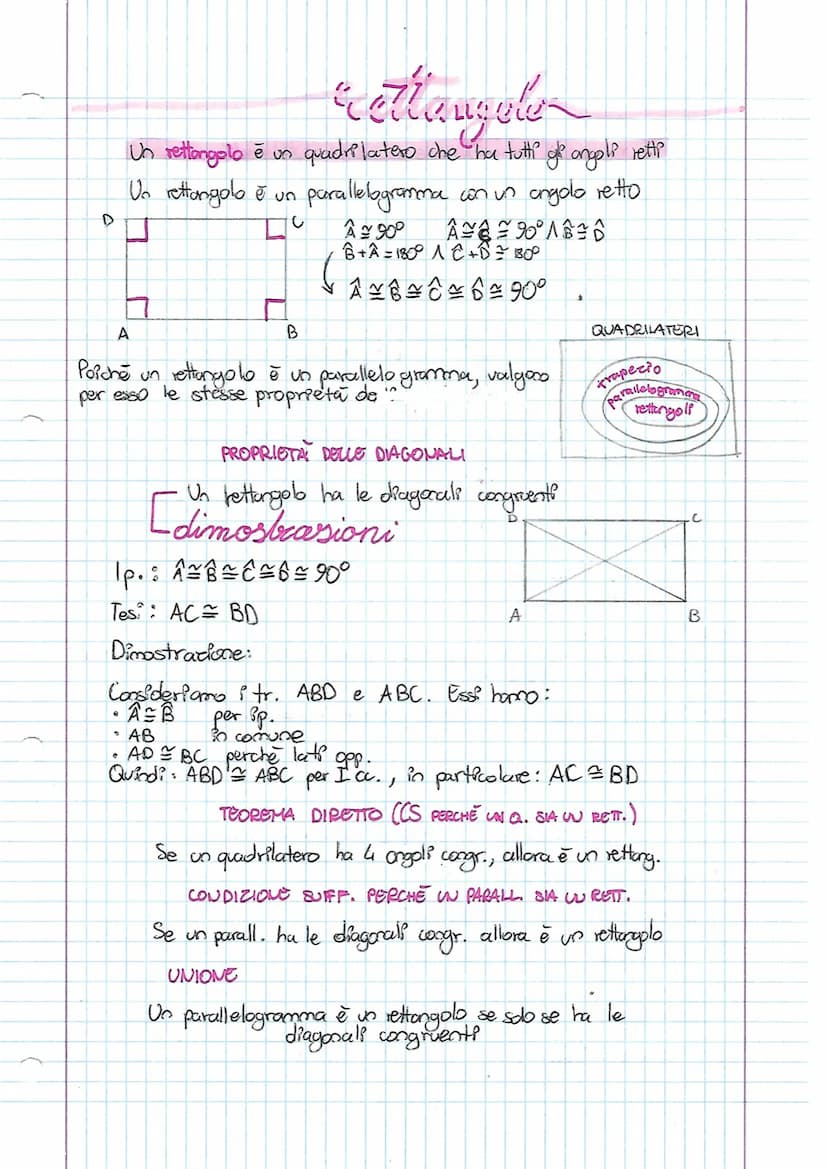 rettangolo
Un rettangolo è un quadrilatero che ha tutti gli angoli retti
Un rettangolo è un parallelogramma con un angolo retto
D C
Â ≅ 90° Â ≅ Ĉ ≅ 90° ∧ B̂ ≅ D̂
B̂ + Â = 180° ∧ Ĉ + D̂ ≅ 180°
Â ≅ B̂ ≅ Ĉ ≅ D̂ ≅ 90°
A B
QUADRILATERI
trapezio
parallelogramma
rettangoli
Poiché un rettangolo è un parallelogramma, valgono
per esso le stesse proprietà de
PROPRIETÀ DELLE DIAGONALI
Un rettangolo ha le diagonali congruenti
dimostrazioni
D C
Ip.: Â ≅ B̂ ≅ Ĉ ≅ D̂ ≅ 90°
Tesi: AC ≅ BD
A B
Dimostrazione:
Consideriamo i tr. ABD e ABC. Essi hanno:
• Â ≅ B̂ per ip.
• AB in comune
• AD ≅ BC perché lati opp.
Quindi: ABD ≅ ABC per I c., in particolare: AC ≅ BD
TEOREMA DIRETTO (CS PERCHÉ UN Q. SIA UN RETT.)
Se un quadrilatero ha 4 angoli congr., allora è un rettang.
CONDIZIONE SUFF. PERCHÉ UN PARALL. SIA UN RETT.
Se un parall. ha le diagonali congr. allora è un rettangolo
UNIONE
Un parallelogramma è un rettangolo se solo se ha le
diagonali congruenti